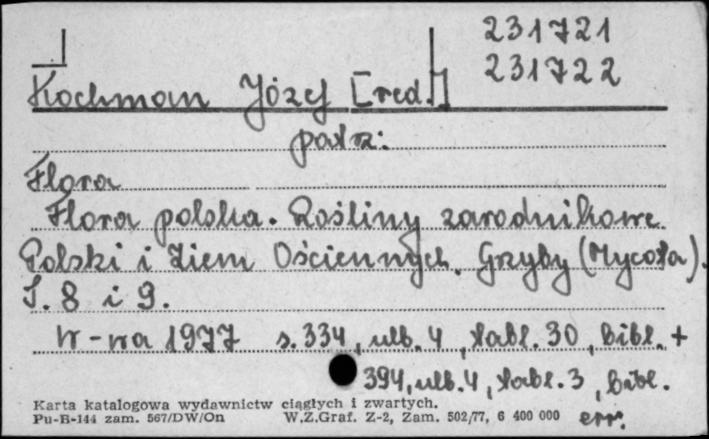 231721
231722
Kochman Józef [red.]
patrz:
Flora
Flora polska. Rośliny zarodnikowe
Polski i Ziem Ościennych. Grzyby (Mycota).
T. 8 i 9.
W-wa 1977 s. 334, ulb. 4, tabl. 30, bibl. +
394, ulb. 4, tabl. 3, bibl.
err.
Karta katalogowa wydawnictw ciągłych i zwartych.
Pu-B-144 zam. 567/DW/On W.Z.Graf. Z-2, Zam. 502/77, 6 400 000